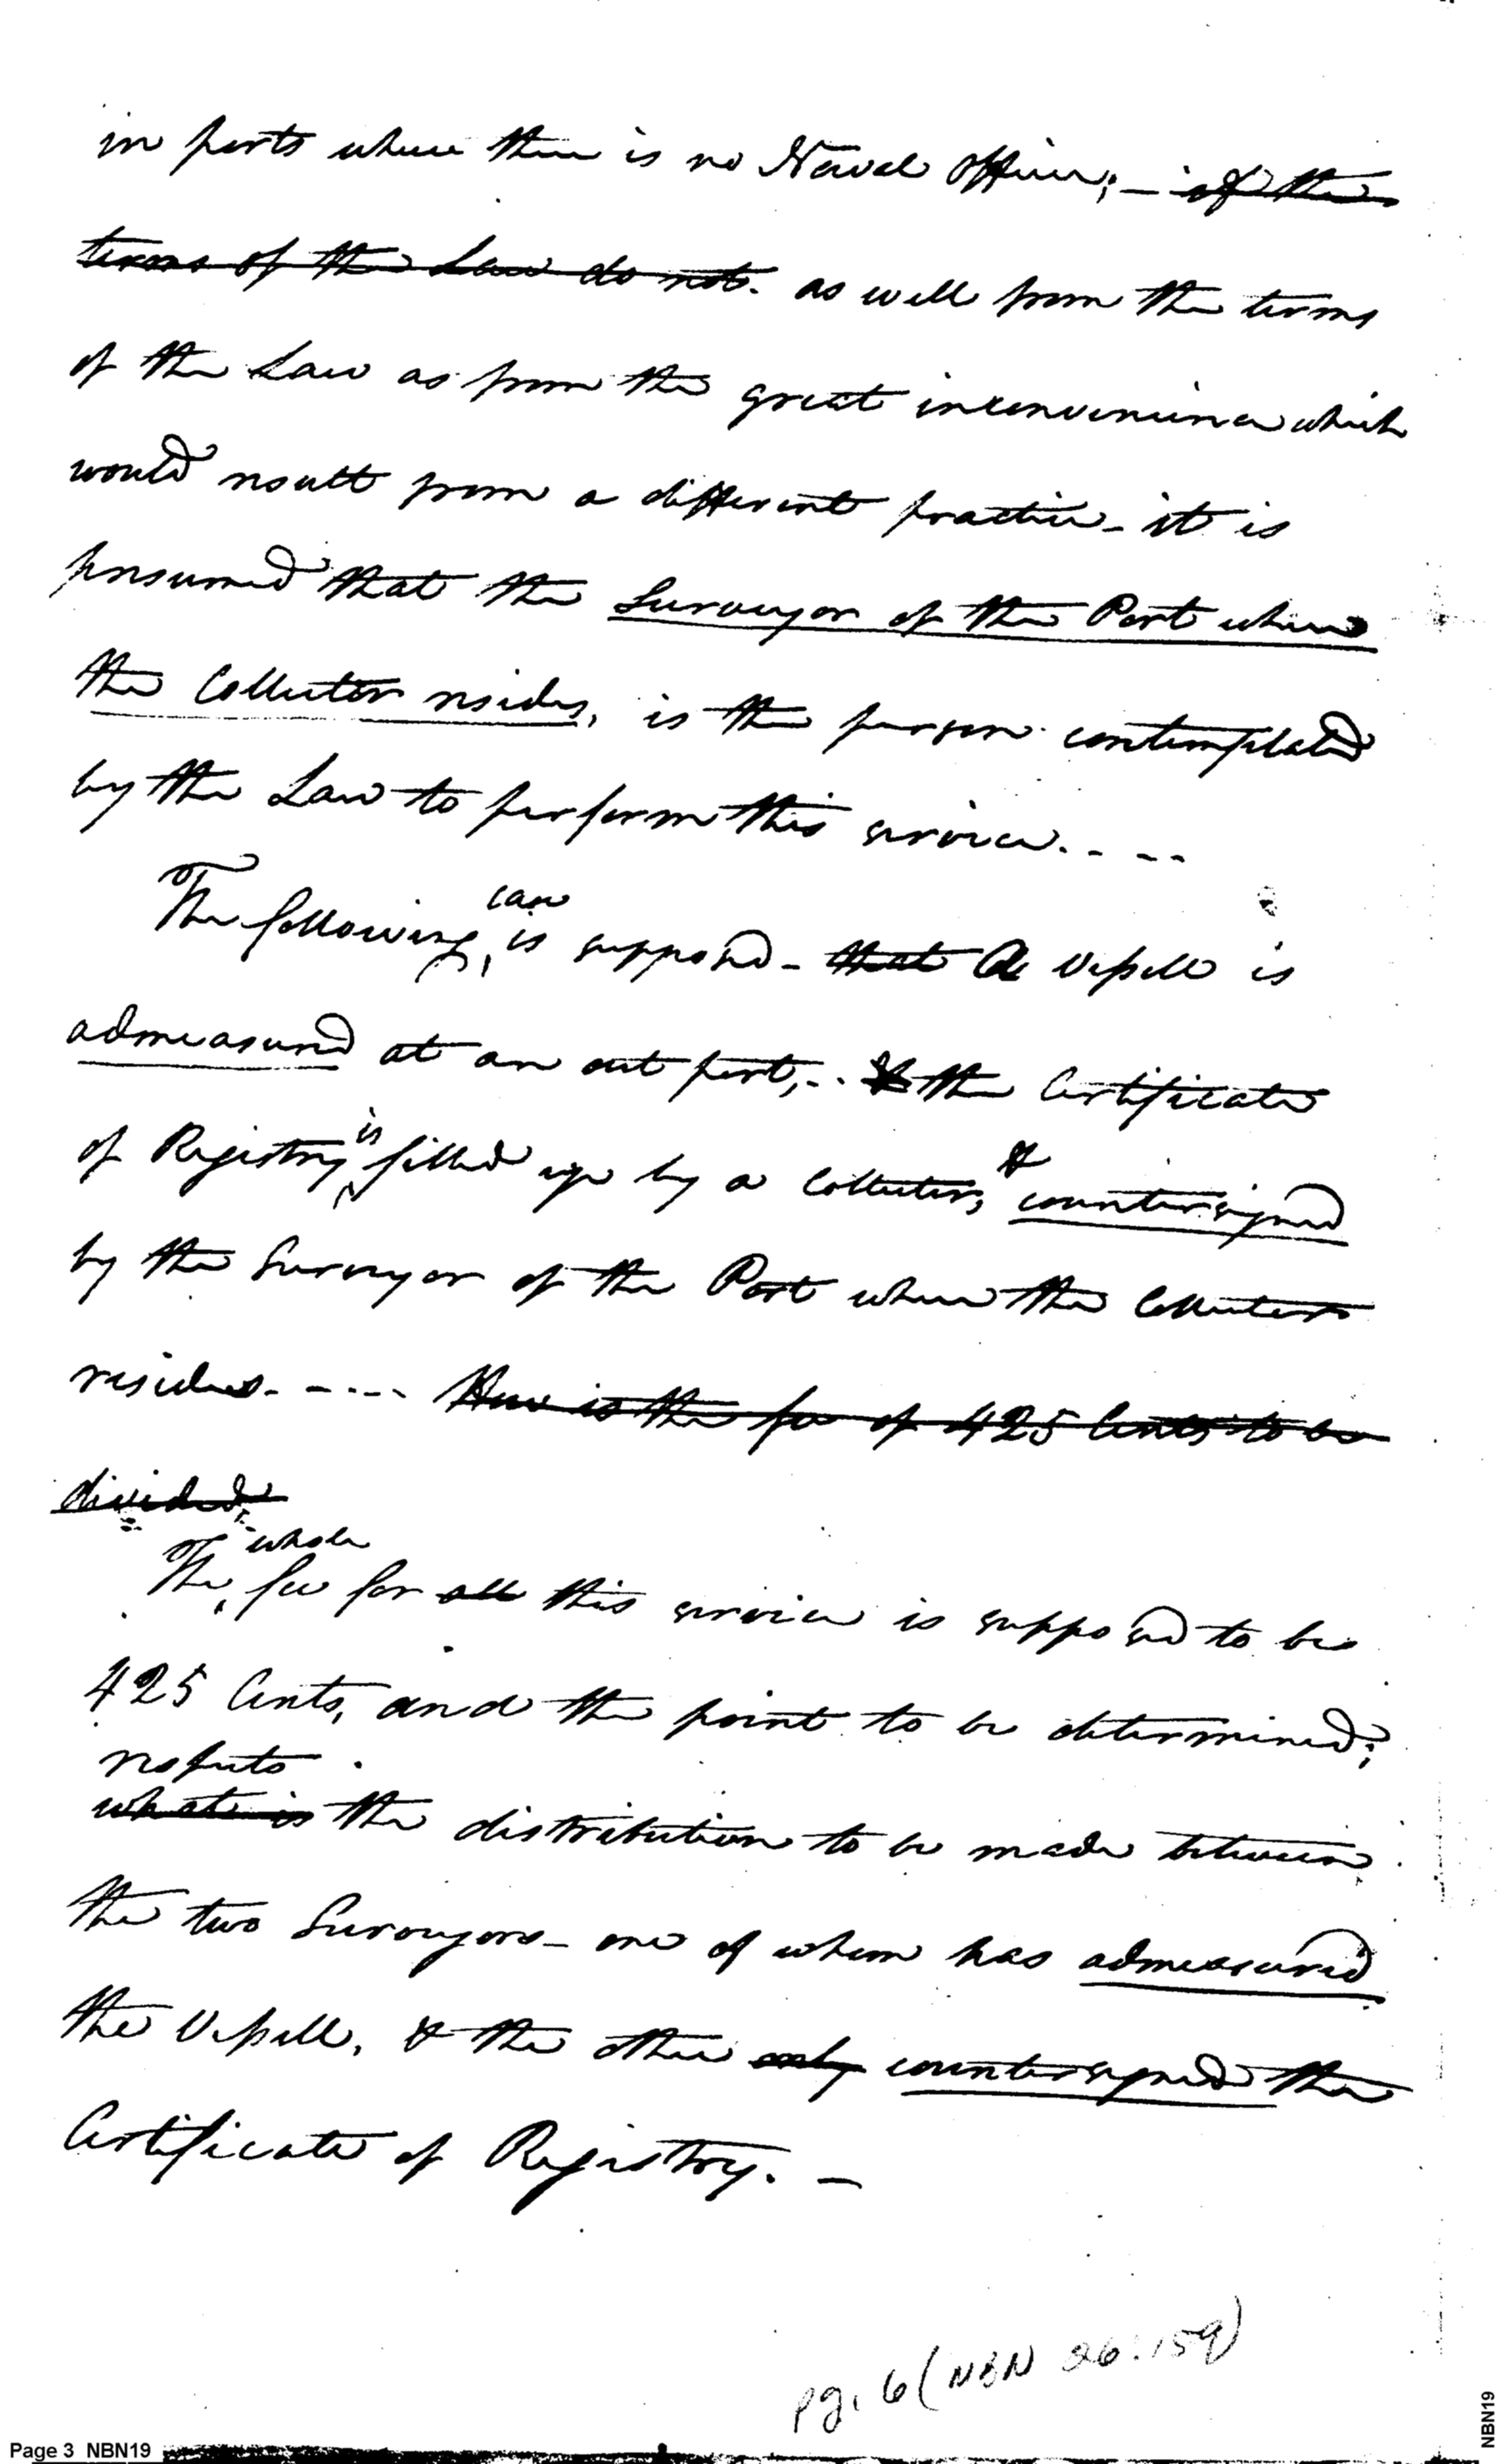 in ports where there is no Naval Officer; – if the
terms of the Law do not. as well from the terms
of the Law as from the great inconvenience which
would result from a different practice – it is
presumed that the Surveyor of the Port where
the Collector resides, is the person contemplated
by the Law to perform this service. - - -
The following case is supposed – that A Vessell is
admeasured at an out port, - . & the Certificate
of Registry is filled up by a Collector, & countersigned
by the Surveyor of the Port where the Collector
resides. - - - - How is the fee of 425 Cents to be
divided.
The whole fee for all this service is supposed to be
425 Cents, and the point to be determined;
respects
what is the distribution to be made between
the two Surveyors – one of whom has admeasured
the Vessell, & the other only countersigned the
Certificate of Registry. –
pg. 6 (NBN 26:159)
Page 3 NBN19
NBN19